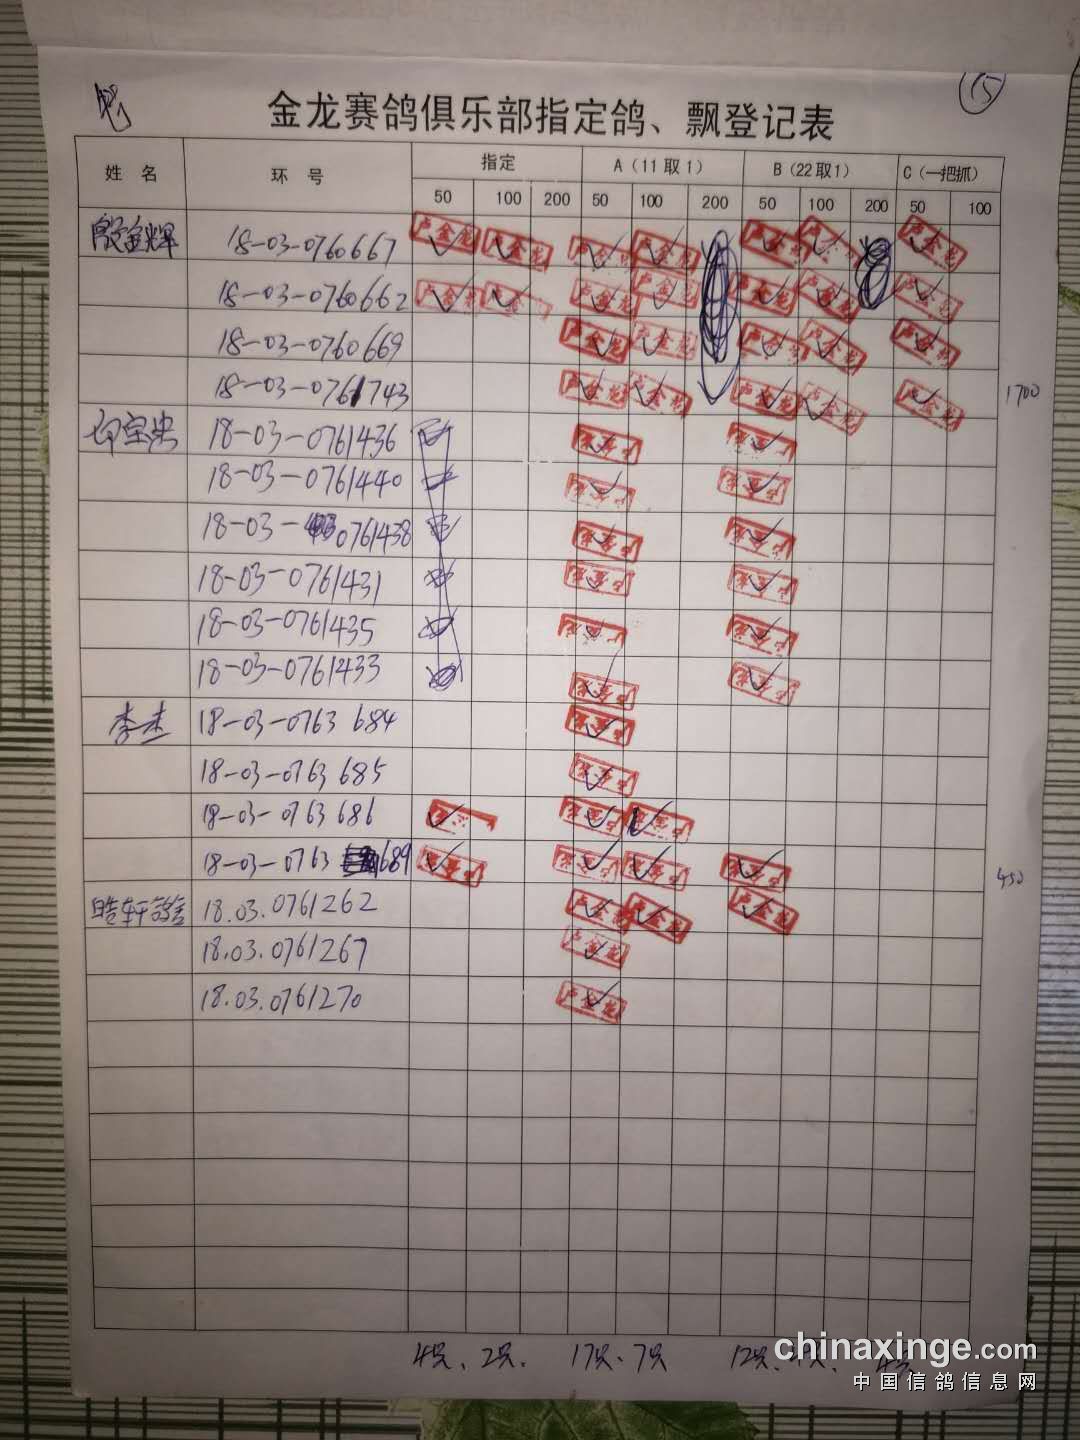 15
金龙赛鸽俱乐部指定鸽、飘登记表
姓 名 环 号 指定 A(11取1) B(22取1) C(一把抓)
50 100 200 50 100 200 50 100 200 50 100
殷金辉 18-03-0760667
18-03-0760662
18-03-0760669
18-03-0761743 1700
18-03-0761436
18-03-0761440
18-03-0761438
18-03-0761431
18-03-0761435
18-03-0761433
李杰 18-03-0763684
18-03-0763685
18-03-0763686
18-03-0763689 450
皓轩鸽舍 18.03.0761262
18.03.0761267
18.03.0761270
4只、2只. 17只、7只 12只、4只、4只
chinaxinge.com
中国信鸽信息网